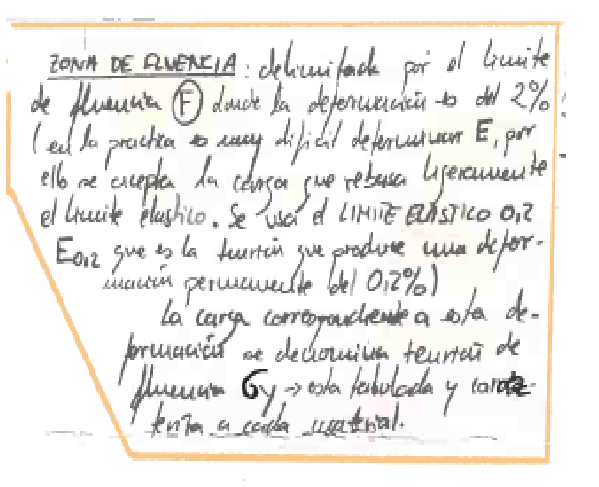 ZONA DE FLUENCIA: delimitada por el limite
de fluencia (F) donde la deformación es del 2%
(en la practica es muy dificil determinar E, por
ello se acepta la carga que rebasa ligeramente
el limite elastico. Se usa el LIMITE ELASTICO 0,2
E0,2 que es la tensión que produce una defor-
mación permanente del 0,2%)
La carga correspondiente a esta de-
formación se denomina tensión de
fluencia σy → esta tabulada y carac-
teriza a cada material.